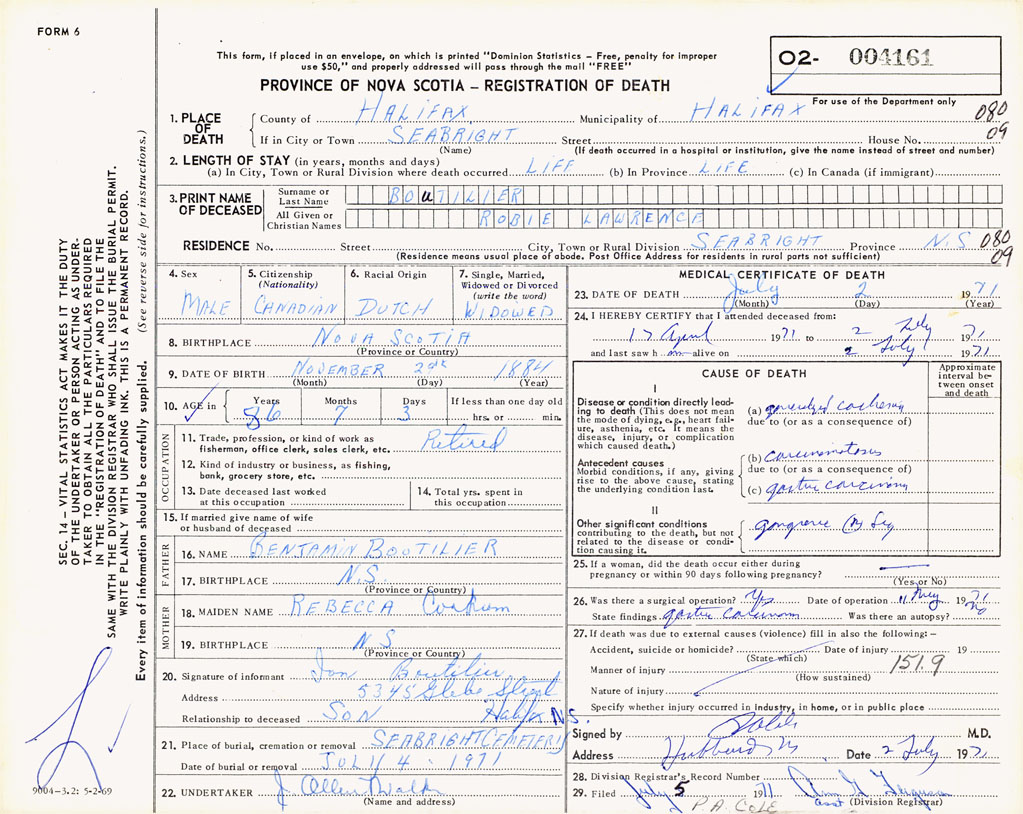 FORM 6
This form, if placed in an envelope, on which is printed "Dominion Statistics – Free, penalty for improper
use $50," and properly addressed will pass through the mail "FREE"
O2- 004161
PROVINCE OF NOVA SCOTIA – REGISTRATION OF DEATH
For use of the Department only
1. PLACE OF DEATH
County of HALIFAX Municipality of HALIFAX 080
If in City or Town SEABRIGHT Street House No. 09
(Name) (If death occurred in a hospital or institution, give the name instead of street and number)
2. LENGTH OF STAY (in years, months and days)
(a) In City, Town or Rural Division where death occurred LIFE (b) In Province LIFE (c) In Canada (if immigrant)
3. PRINT NAME OF DECEASED
Surname or Last Name BOUTILIER
All Given or Christian Names ROBIE LAWRENCE
RESIDENCE No. Street City, Town or Rural Division SEABRIGHT Province N.S 080
(Residence means usual place of abode. Post Office Address for residents in rural parts not sufficient) 09
4. Sex
MALE
5. Citizenship
(Nationality)
CANADIAN
6. Racial Origin
DUTCH
7. Single, Married,
Widowed or Divorced
(write the word)
WIDOWED
8. BIRTHPLACE NOVA SCOTIA
(Province or Country)
9. DATE OF BIRTH NOVEMBER 29th 1884
(Month) (Day) (Year)
10. AGE in Years Months Days If less than one day
86 7 3 hrs. or min.
OCCUPATION
11. Trade, profession, or kind of work as
fisherman, office clerk, sales clerk, etc. Retired
12. Kind of industry or business, as fishing,
bank, grocery store, etc.
13. Date deceased last worked
at this occupation
14. Total yrs. spent in
this occupation
15. If married give name of wife
or husband of deceased
FATHER
16. NAME BENJAMIN BOUTILIER
17. BIRTHPLACE N.S.
(Province or Country)
MOTHER
18. MAIDEN NAME REBECCA
19. BIRTHPLACE N.S
(Province or Country)
20. Signature of informant Boutilier
Address 5345 Glebe Street
Relationship to deceased SON Halifax N.S.
21. Place of burial, cremation or removal SEABRIGHT CEMETERY
Date of burial or removal JULY 4 - 1971
22. UNDERTAKER J Allen
(Name and address)
MEDICAL CERTIFICATE OF DEATH
23. DATE OF DEATH July 2 1971
(Month) (Day) (Year)
24. I HEREBY CERTIFY that I attended deceased from:
17 April 1971 to 2 July 1971
and last saw h im alive on 2 July 1971
CAUSE OF DEATH
Approximate
interval be-
tween onset
and death
I
Disease or condition directly lead-
ing to death (This does not mean
the mode of dying, e.g., heart fail-
ure, asthenia, etc. It means the
disease, injury, or complication
which caused death.)
(a) generalized cachexia
due to (or as a consequence of)
Antecedent causes
Morbid conditions, if any, giving
rise to the above cause, stating
the underlying condition last.
(b) carcinomatosis
due to (or as a consequence of)
(c) gastric carcinoma
II
Other significant conditions
contributing to the death, but not
related to the disease or condi-
tion causing it.
gangrene (R) leg
25. If a woman, did the death occur either during
pregnancy or within 90 days following pregnancy?
(Yes or No)
26. Was there a surgical operation? Yes Date of operation 11 May 1971
State findings gastric carcinoma Was there an autopsy? no
27. If death was due to external causes (violence) fill in also the following: –
Accident, suicide or homicide? Date of injury 19
(State which) 151.9
Manner of injury
(How sustained)
Nature of injury
Specify whether injury occurred in industry, in home, or in public place
Signed by M.D.
Address Hubbards Date 2 July 1971
28. Division Registrar's Record Number
29. Filed July 5 1971 Ferguson
P.A. COLE asst (Division Registrar)
SEC. 14 – VITAL STATISTICS ACT MAKES IT THE DUTY
OF THE UNDERTAKER OR PERSON ACTING AS UNDER-
TAKER TO OBTAIN ALL THE PARTICULARS REQUIRED
IN THE "REGISTRATION OF DEATH" AND TO FILE THE
SAME WITH THE DIVISION REGISTRAR WHO SHALL ISSUE THE BURIAL PERMIT.
WRITE PLAINLY WITH UNFADING INK. THIS IS A PERMANENT RECORD.
Every item of information should be carefully supplied. (See reverse side for instructions.)
9004-3.2: 5-2-69